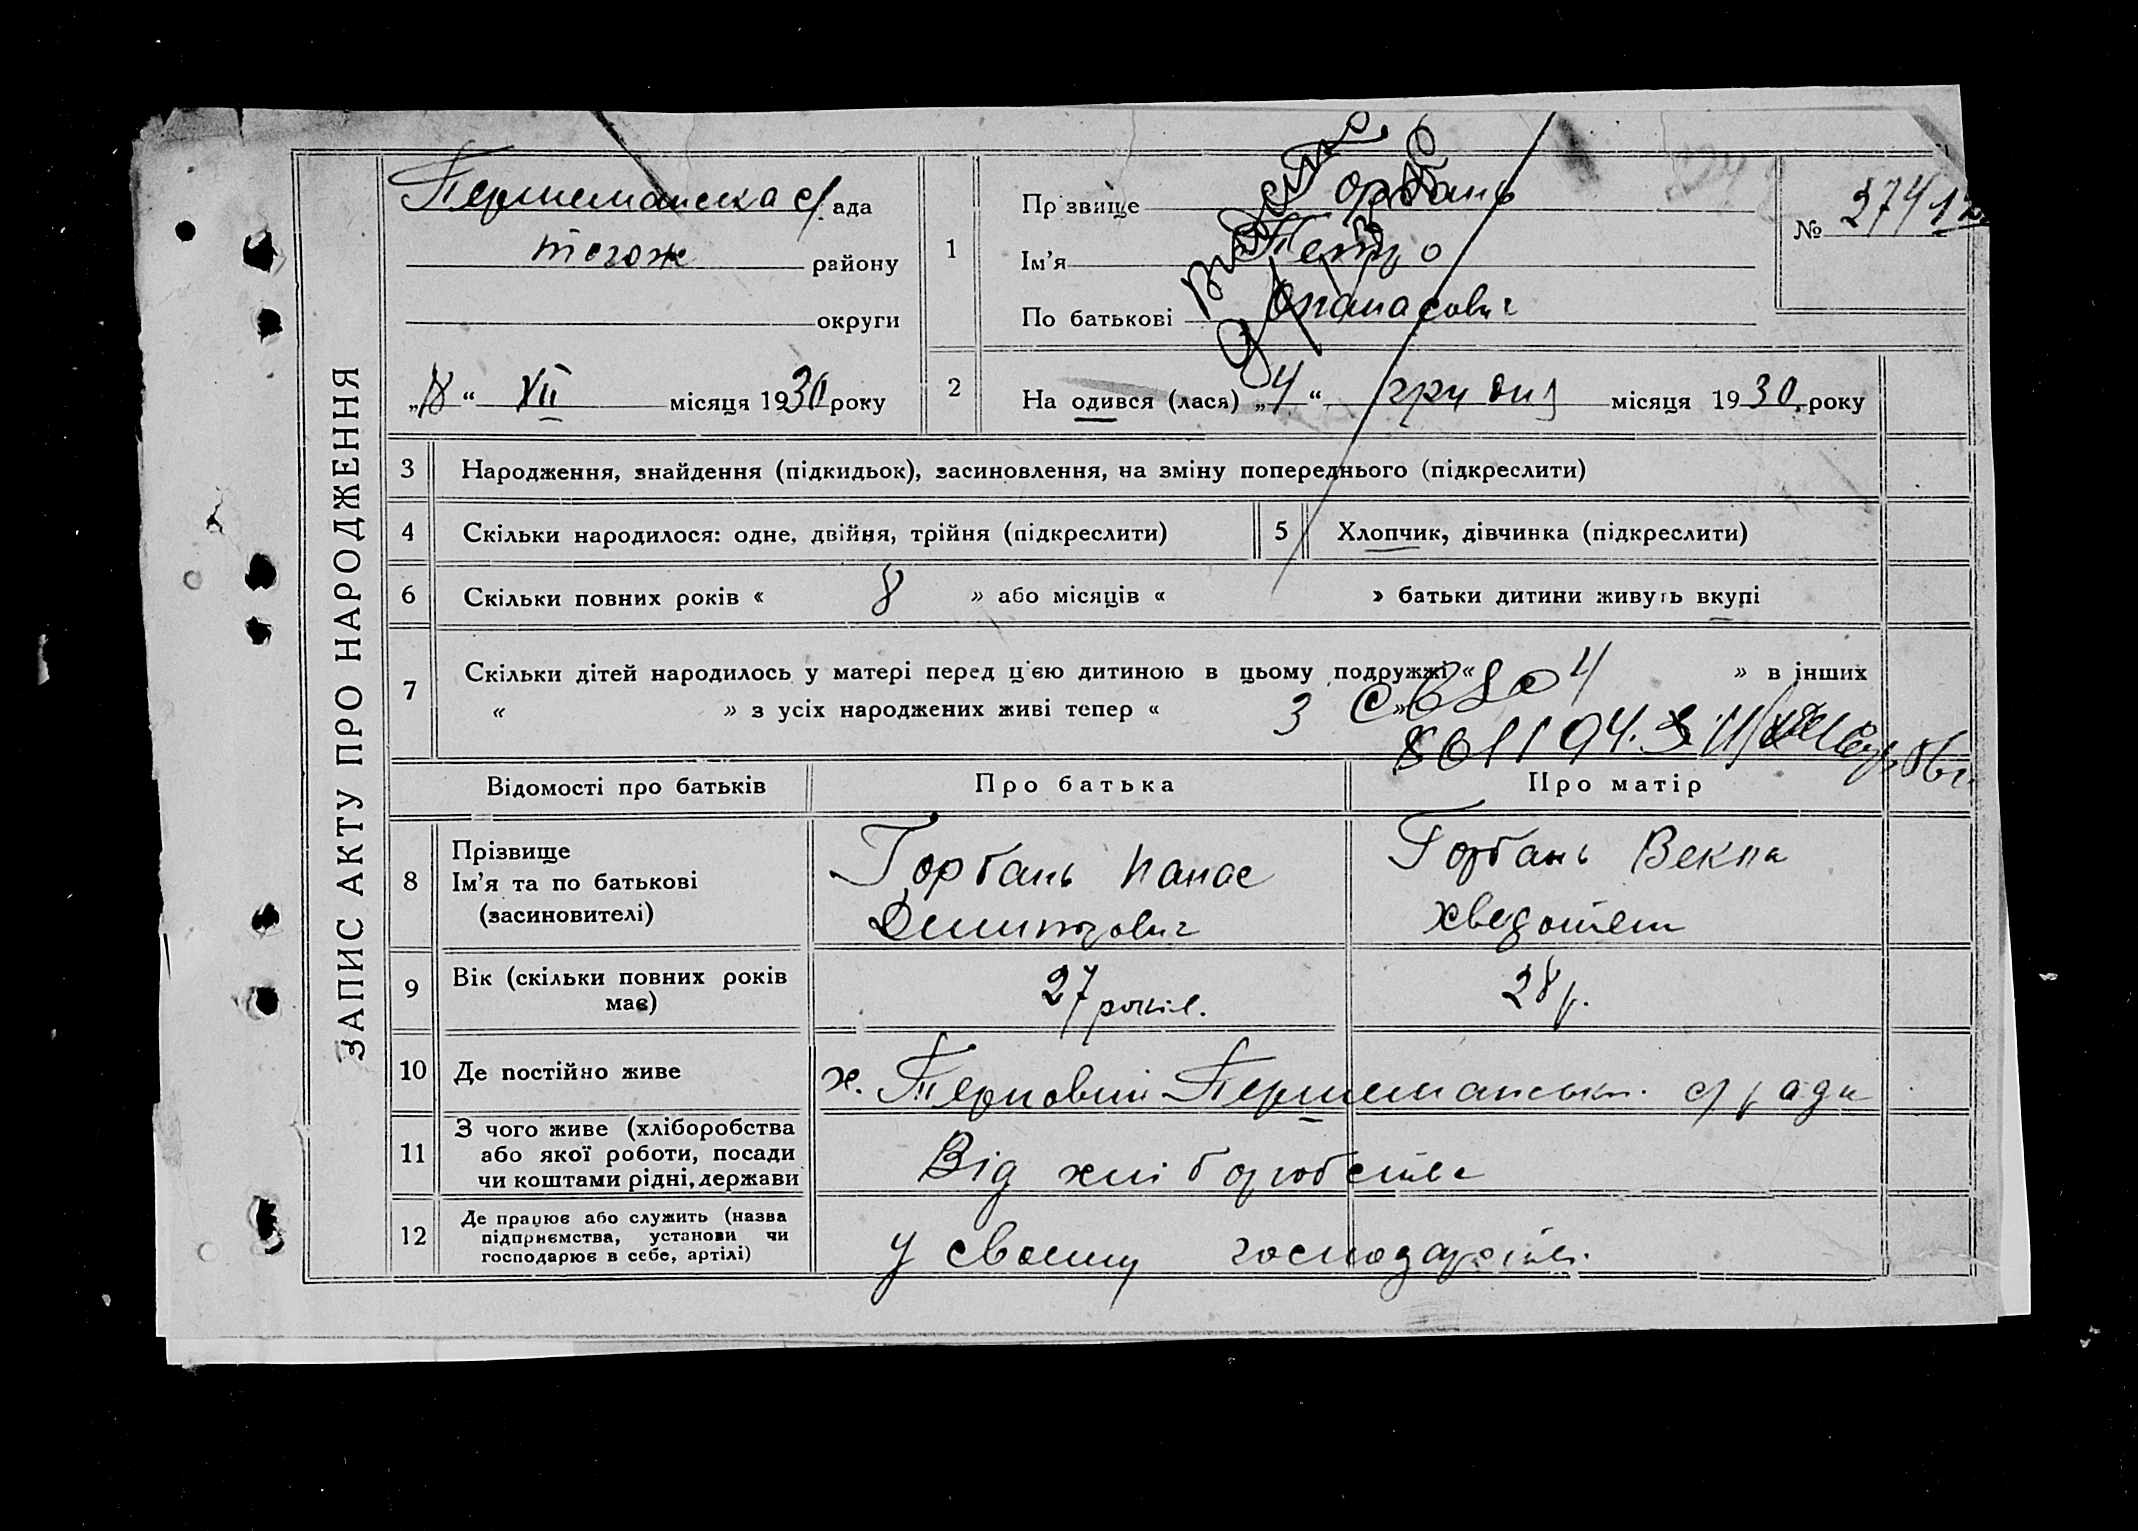 ЗАПИС АКТУ ПРО НАРОДЖЕННЯ
Першеманська с/рада
тогож району
округи
„18“ XII місяця 1930 року
1
Прізвище Горбань
Ім’я Петро
По батькові Опанасович
№ 274
2
Народився (лася) „4“ грудня місяця 1930 року
3 Народження, знайдення (підкидьок), засиновлення, на зміну попереднього (підкреслити)
4 Скільки народилося: одне, двійня, трійня (підкреслити)
5 Хлопчик, дівчинка (підкреслити)
6 Скільки повних років « 8 » або місяців « » батьки дитини живуть вкупі
7 Скільки дітей народилось у матері перед ц'єю дитиною в цьому подружжі « 4 » в інших
« » з усіх народжених живі тепер « 3 »
Відомості про батьків
Про батька
Про матір
8 Прізвище
Ім’я та по батькові
(засиновителі)
Горбань Панас
Дмитрович
Горбань Векла
9 Вік (скільки повних років
має)
27 років.
28 р.
10 Де постійно живе
х. Терновий Першеманськ. с/ради
11 З чого живе (хліборобства
або якої роботи, посади
чи коштами рідні, держави
Від хліборобства
12 Де працює або служить (назва
підприємства, установи чи
господарює в себе, артілі)
У своєму господарстві.